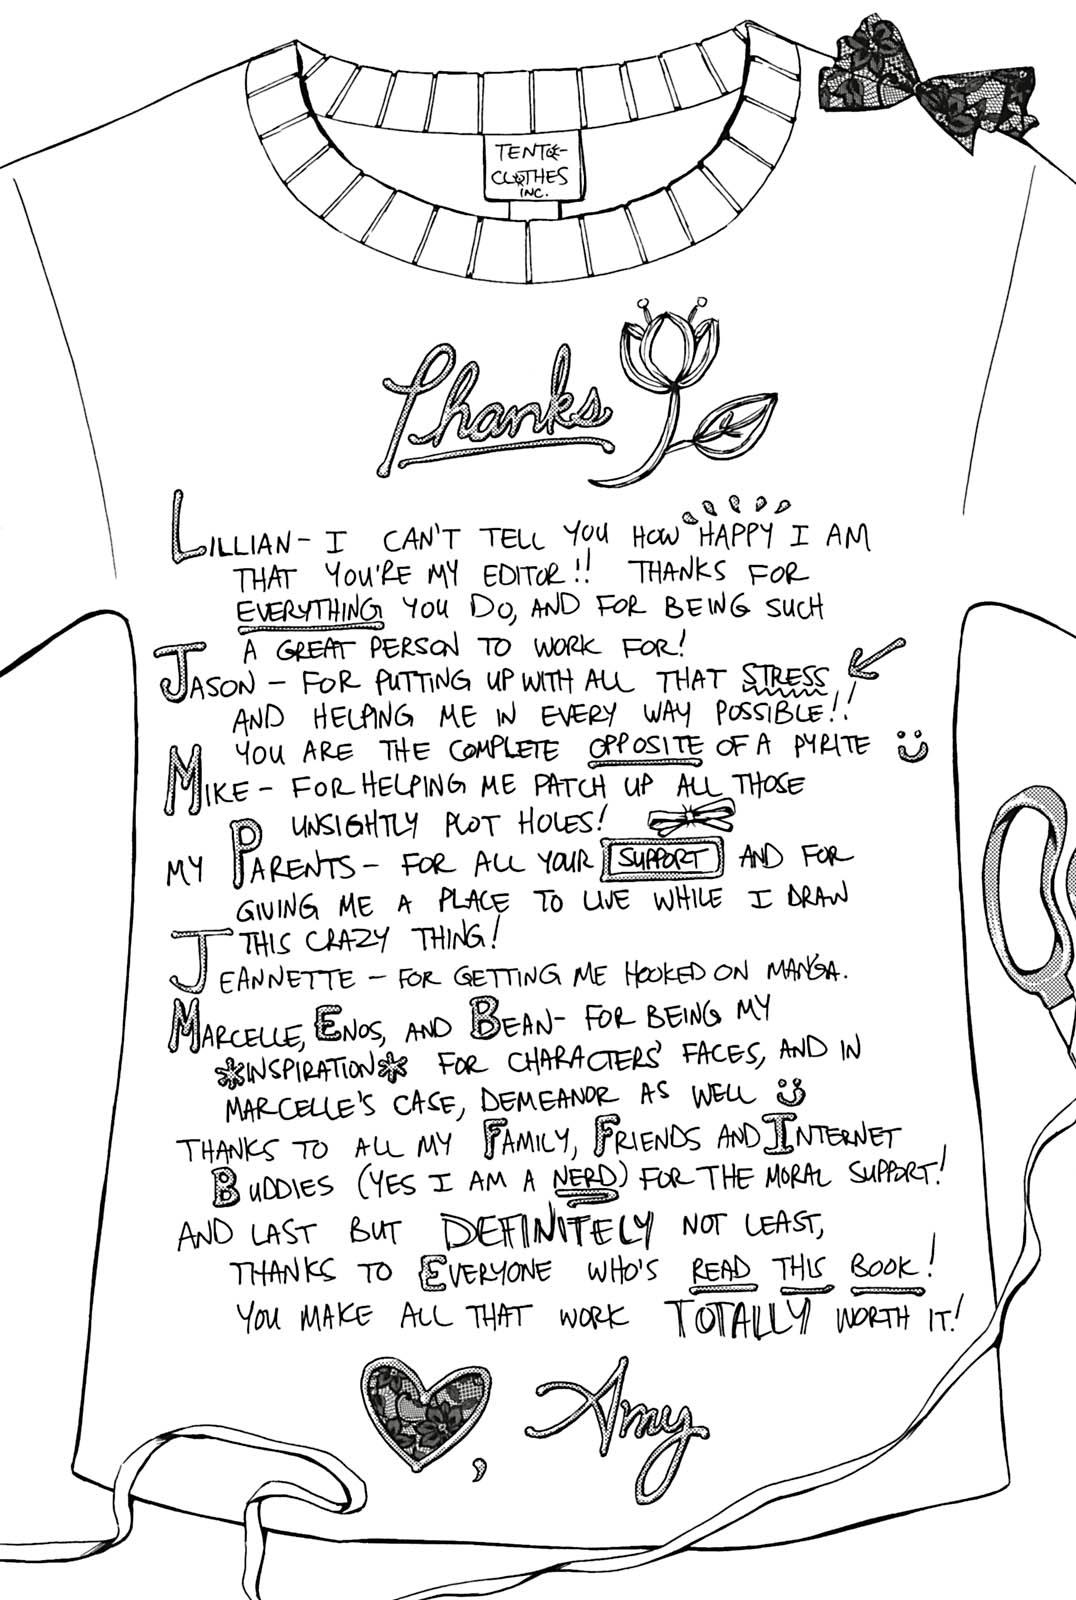 TENTO-
CLOTHES
INC.
Thanks
LILLIAN - I CAN'T TELL YOU HOW HAPPY I AM
THAT YOU'RE MY EDITOR!! THANKS FOR
EVERYTHING YOU DO, AND FOR BEING SUCH
A GREAT PERSON TO WORK FOR!
JASON - FOR PUTTING UP WITH ALL THAT STRESS
AND HELPING ME IN EVERY WAY POSSIBLE!!
YOU ARE THE COMPLETE OPPOSITE OF A PYRITE
MIKE - FOR HELPING ME PATCH UP ALL THOSE
UNSIGHTLY PLOT HOLES!
MY PARENTS - FOR ALL YOUR SUPPORT AND FOR
GIVING ME A PLACE TO LIVE WHILE I DRAW
THIS CRAZY THING!
JEANNETTE - FOR GETTING ME HOOKED ON MANGA.
MARCELLE, ENOS, AND BEAN - FOR BEING MY
*INSPIRATION* FOR CHARACTERS' FACES, AND IN
MARCELLE'S CASE, DEMEANOR AS WELL
THANKS TO ALL MY FAMILY, FRIENDS AND INTERNET
BUDDIES (YES I AM A NERD) FOR THE MORAL SUPPORT!
AND LAST BUT DEFINITELY NOT LEAST,
THANKS TO EVERYONE WHO'S READ THIS BOOK!
YOU MAKE ALL THAT WORK TOTALLY WORTH IT!
, Amy